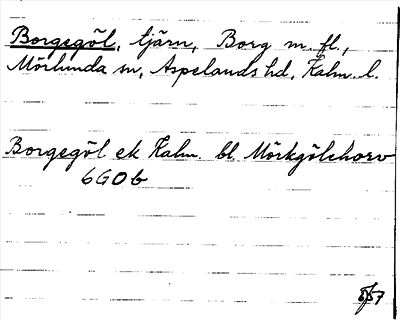 Borgegöl, tjärn, Borg m. fl.,
Mörlunda sn, Aspelands hd, Kalm. l.
Borgegöl ek Kalm. bl Mörkgölehorv
6G0b